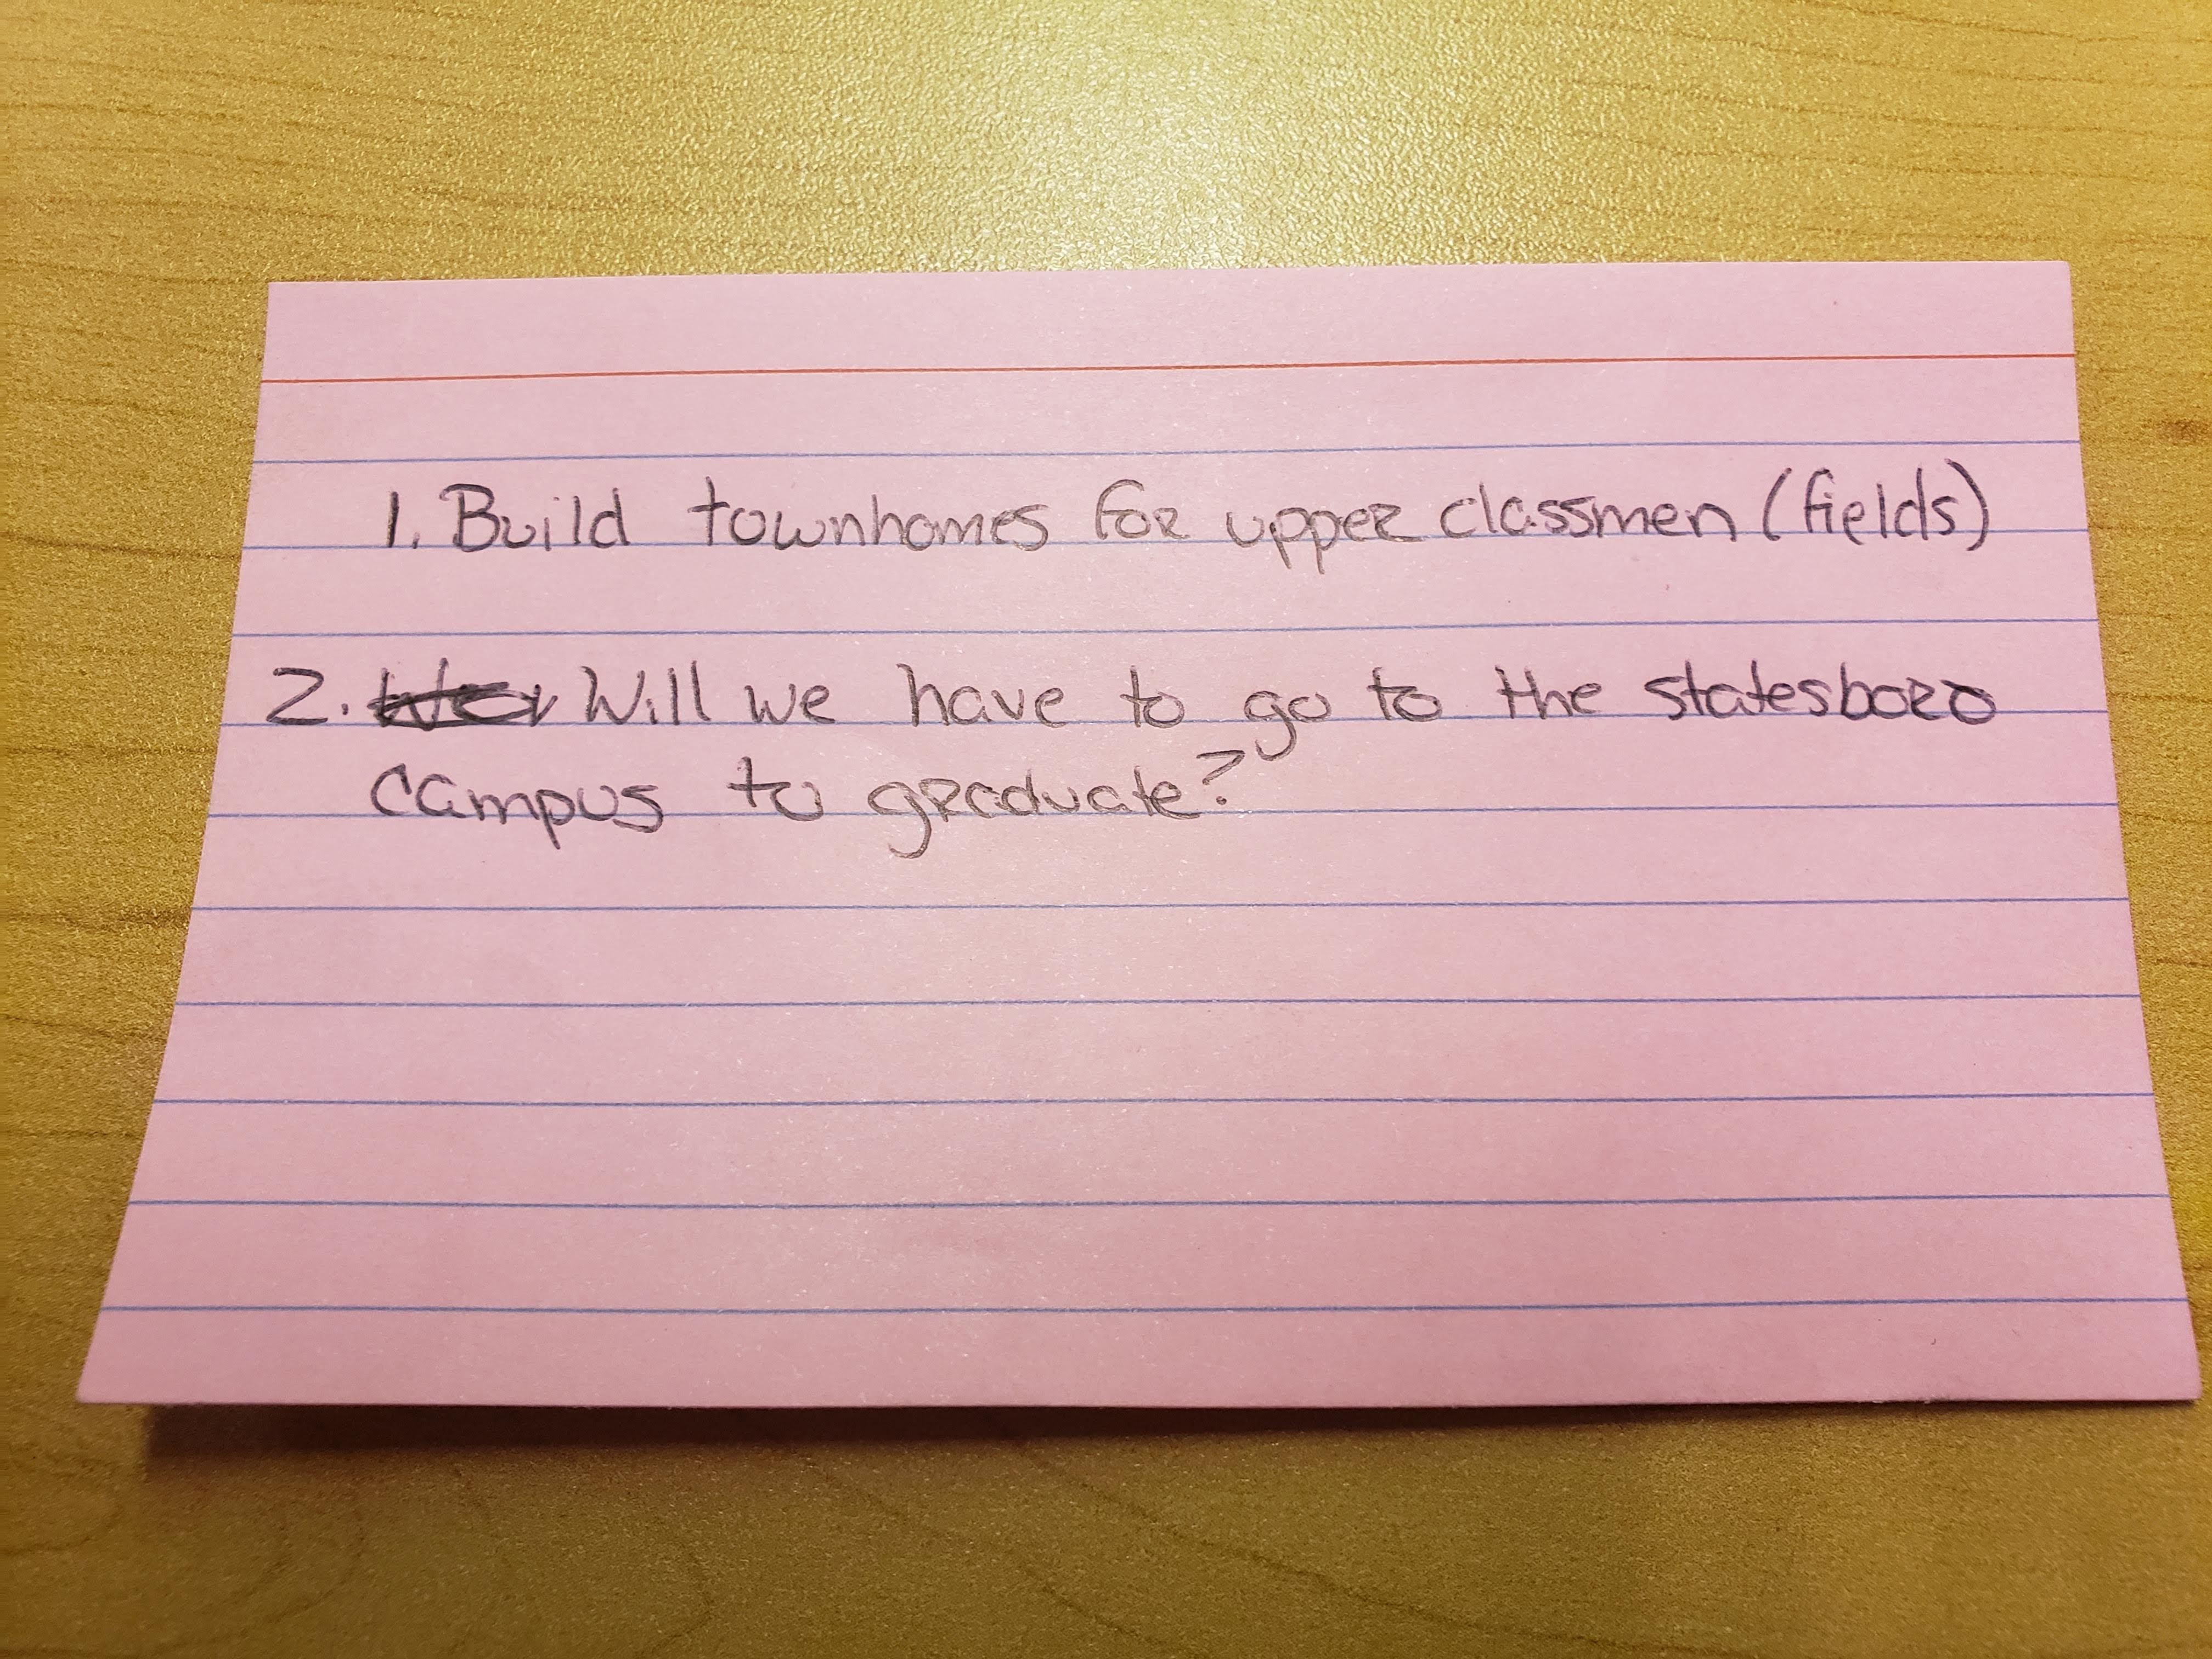 1. Build townhomes for upper classmen (fields)
2. Will we have to go to the statesboro
campus to graduate?